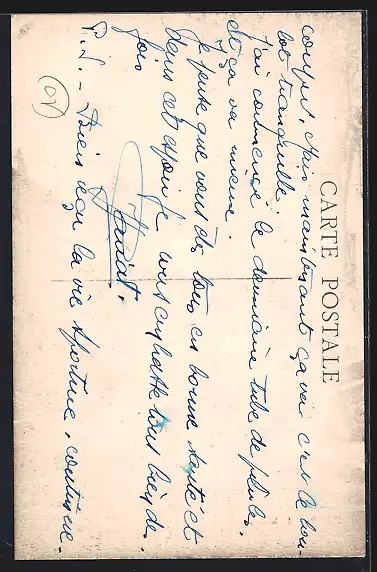 CARTE POSTALE
coups. Mais maintenant ça va c'est le bon-
bot tranquille.
J'ai commencé le deuxième tube de pilules.
et ça va mieux.
Je pense que vous êtes tous en bonne santé et
dans cet espoir je vous embrasse tous bien des
fois
P.S. - Bien reçu la vie sportive, continue.